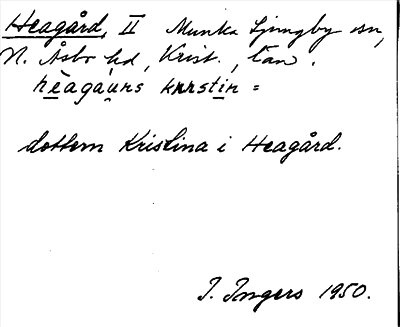 Heagård, II Munka Ljungby sn,
N. Åsbo hd, Krist. län.
hèagau̇ns kʀʀstin =
dottern Kristina i Heagård.
I. Ingers 1950.